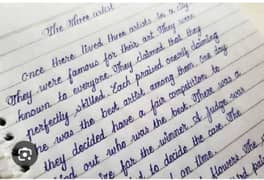 The three artist
Once there lived three artists in a city
They were famous for their art. They were
known to everyone. They claimed that they
perfectly skilled. Each praised onceself claiming
he was the best artist among them. One day
they decided have a fair competition to
find out who was the best. There was a
for the winner. A judge was
to decide the case. The
on time.
flowers. The